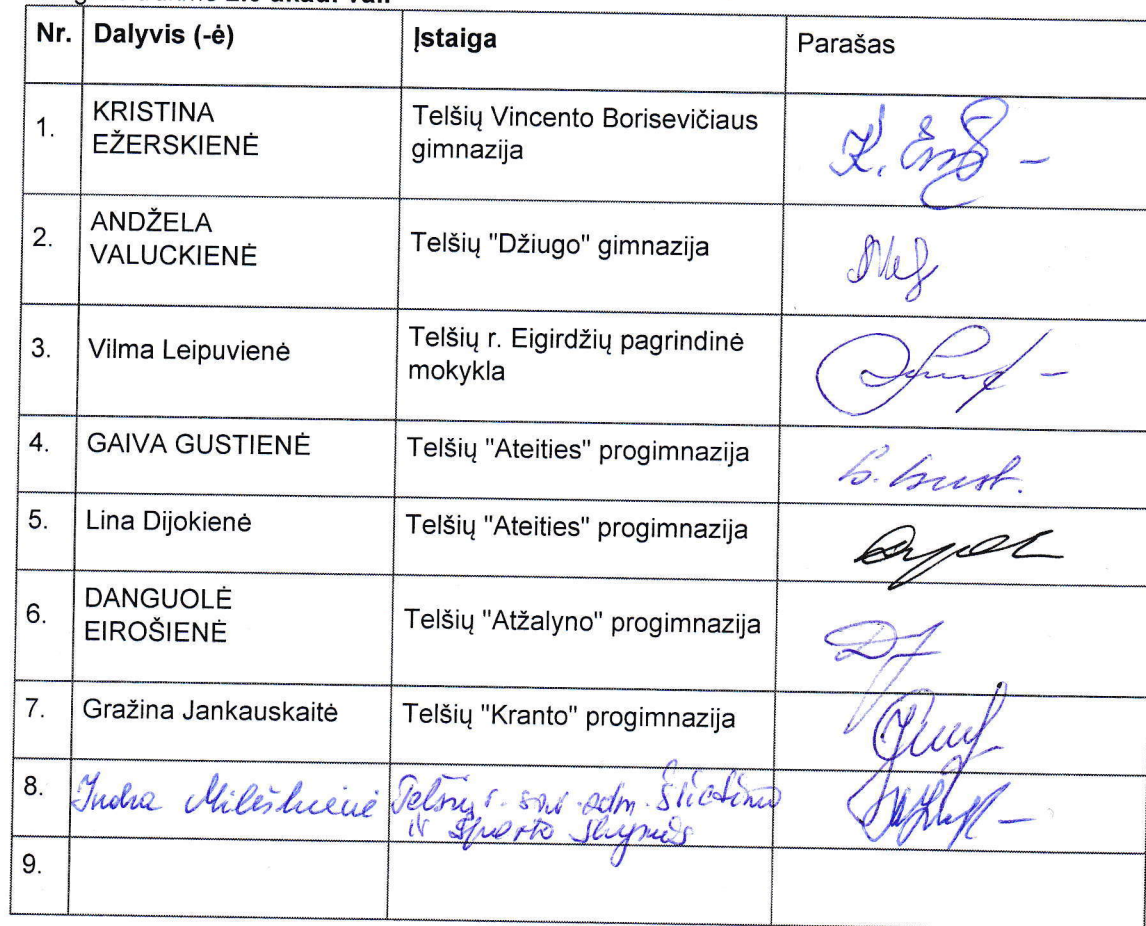 Nr. Dalyvis (-ė) Įstaiga Parašas
1. KRISTINA EŽERSKIENĖ Telšių Vincento Borisevičiaus gimnazija K.
2. ANDŽELA VALUCKIENĖ Telšių "Džiugo" gimnazija
3. Vilma Leipuvienė Telšių r. Eigirdžių pagrindinė mokykla
4. GAIVA GUSTIENĖ Telšių "Ateities" progimnazija G. Gust.
5. Lina Dijokienė Telšių "Ateities" progimnazija
6. DANGUOLĖ EIROŠIENĖ Telšių "Atžalyno" progimnazija
7. Gražina Jankauskaitė Telšių "Kranto" progimnazija
8. Indra Telšių r. sav. adm. Švietimo ir sporto skyrius
9.